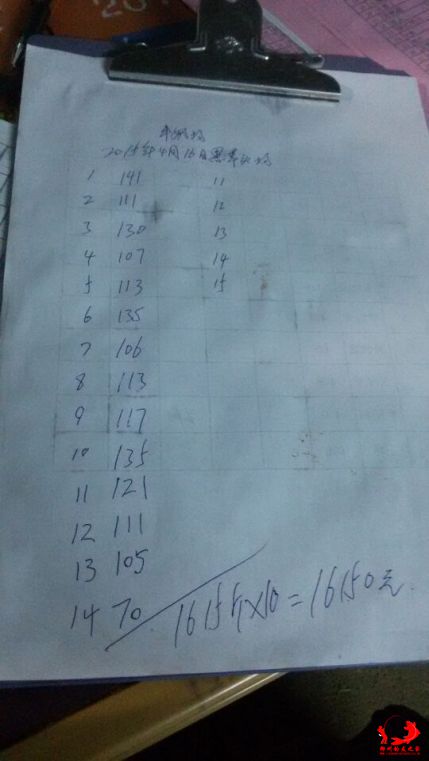 2015年4月15日黑草公坊
1 141 11
2 111 12
3 130 13
4 107 14
5 113 15
6 135
7 106
8 113
9 117
10 135
11 121
12 111
13 105
14 70
1615斤×10=16150元